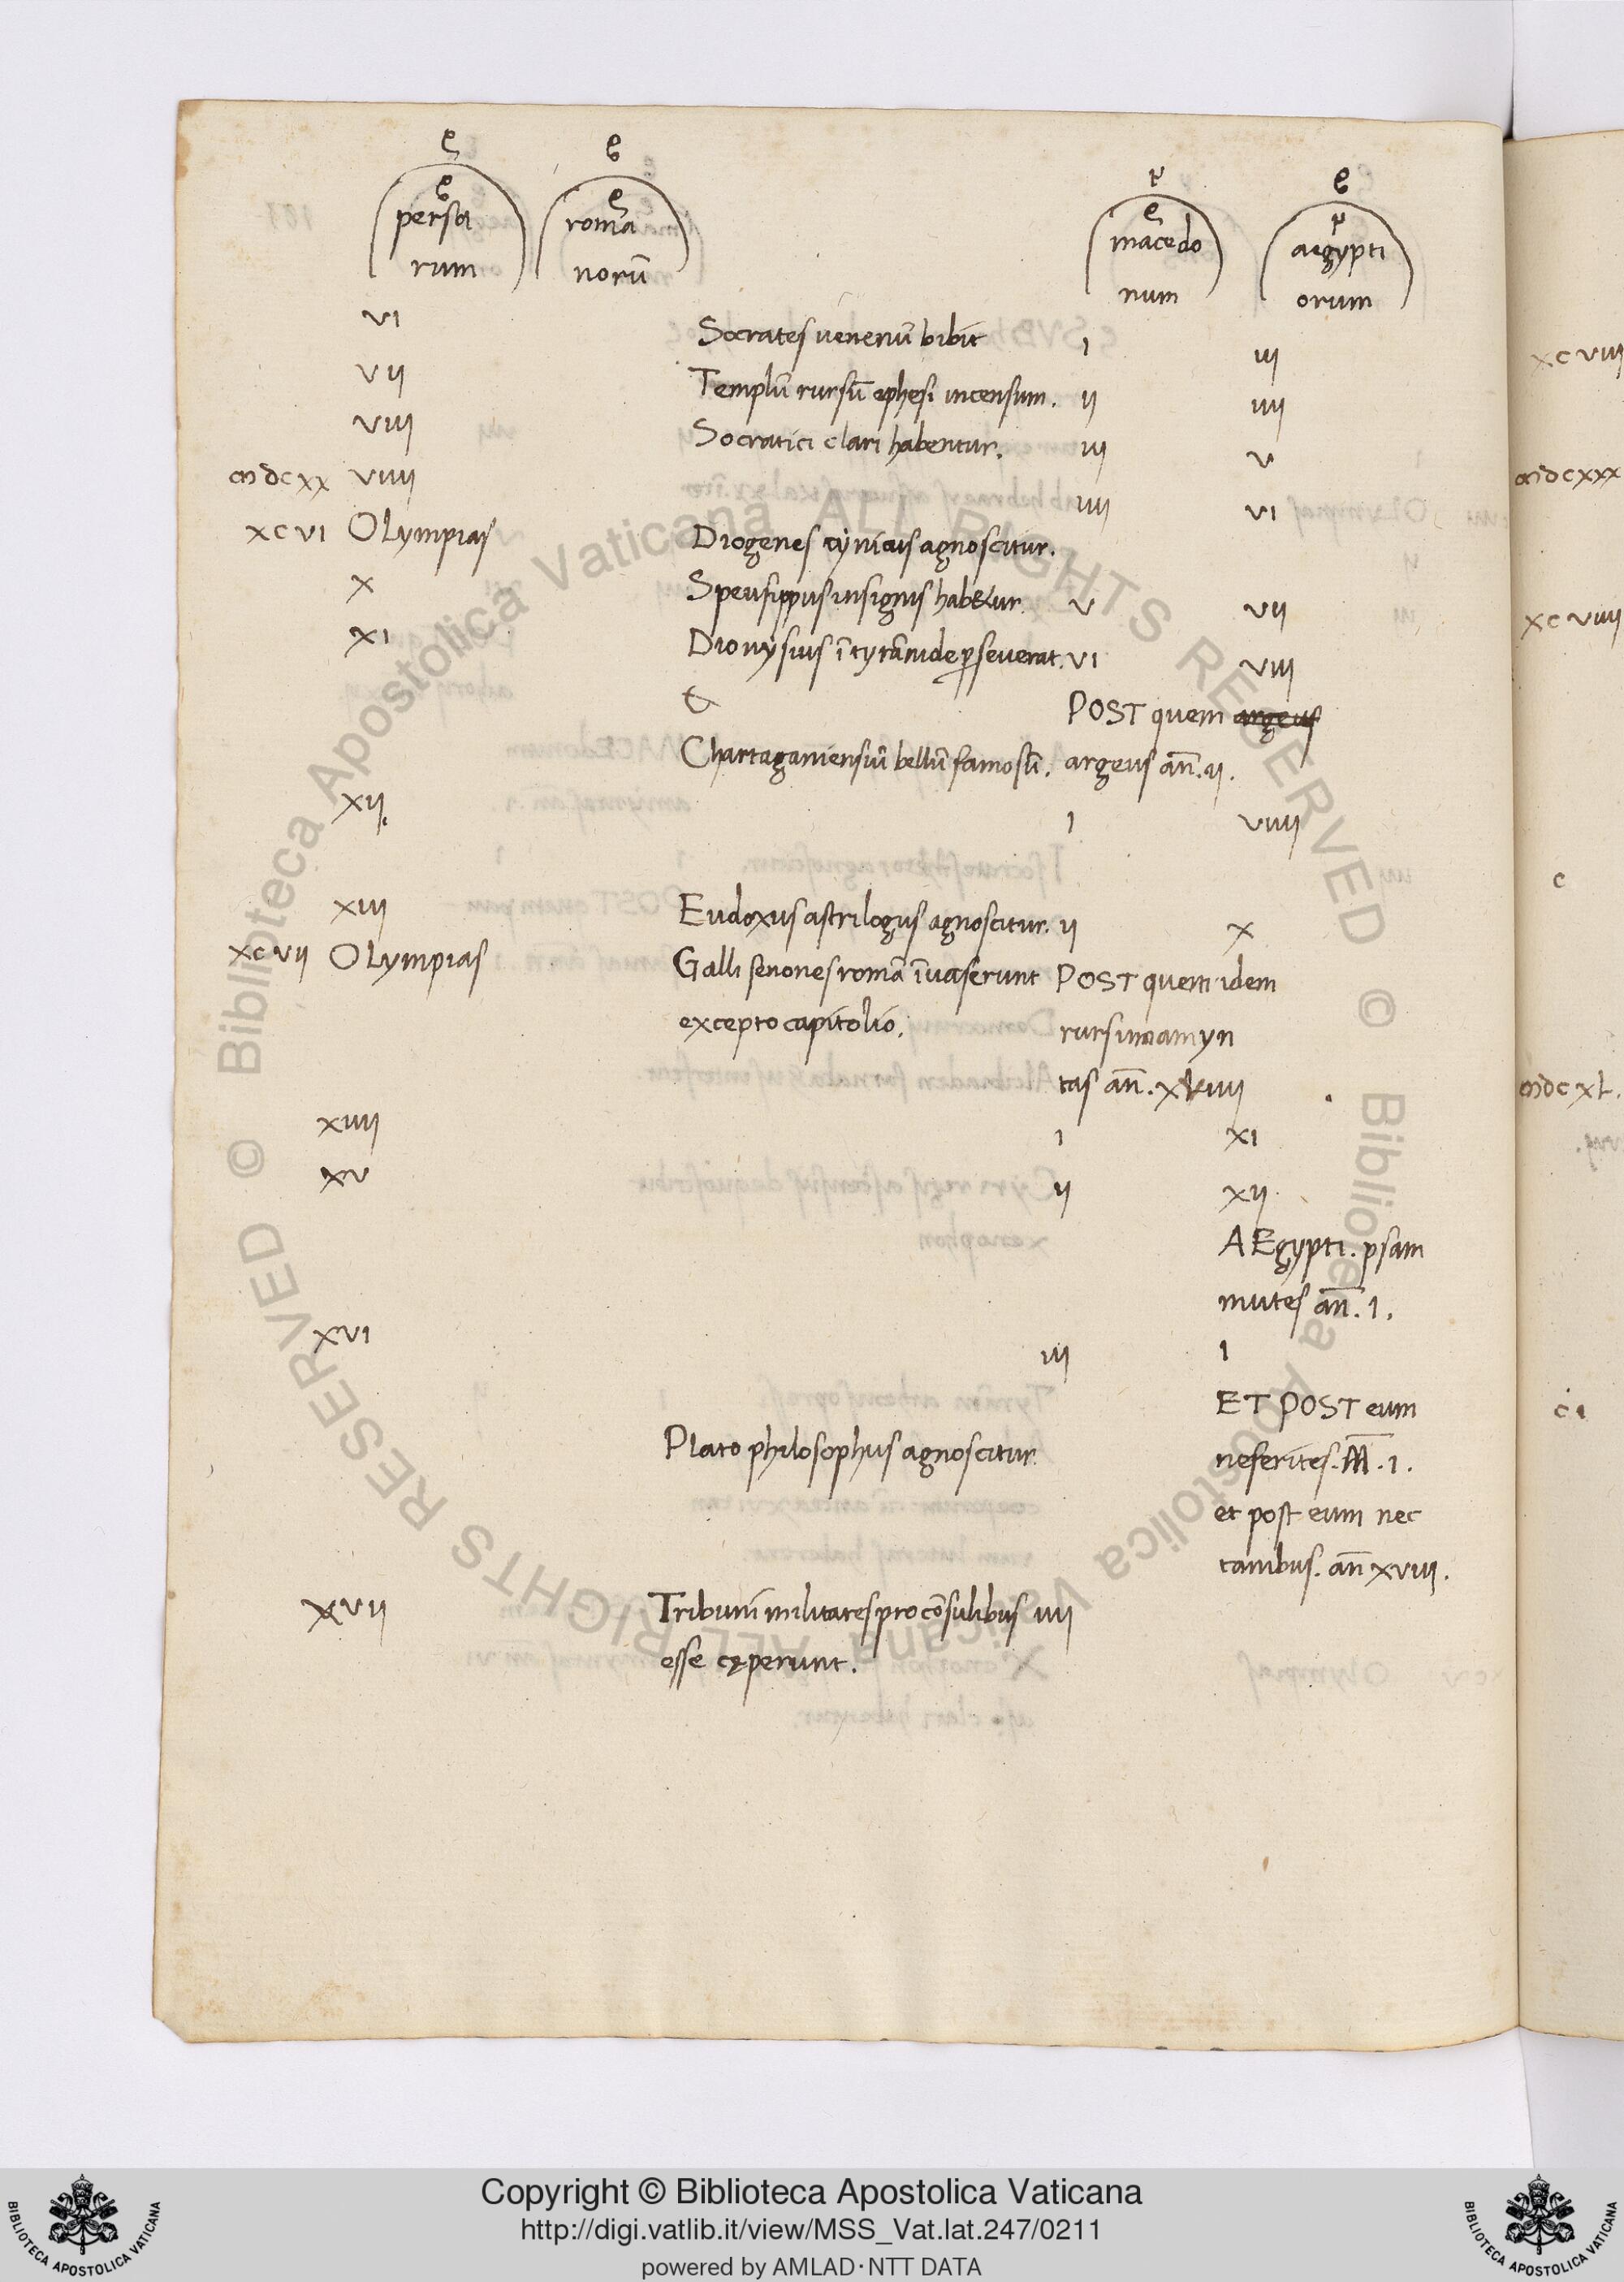 persa romā macedo aegypti
rum norū num orum
VI Socrates uenenū bibit I III
VII Templū rursū ephesi incensum. II IIII
VIII Socratici clari habentur. III V
mdcxx VIIII IIII VI
XCVI OLympias Diogenes cynicus agnoscitur.
X Speusippus insignis hab&ur. V VII
XI Dionysius ī tyrānide perseuerat. VI VIII
& POST quem argeus
Chartaganiensiū bellū famosū. argeus añ. II.
XII. I VIIII
XIII Eudoxus astrilogus agnoscitur. II X
XCVII OLympias Galli senones romā īuaserunt POST quem idem
excepto capitolio. rursum amyn
tas añ.
XIIII I XI
XV II XII
AEgypti. psam
mutes añ. I.
XVI III I
ET POST eum
Plato philosophus agnoscitur. neferites. I.
et post eum nec
tanibus. añ XVIII.
XVII Tribuni militares pro cōsulibus IIII
esse cęperunt.
XCVIII
mdcxxx
XCVIIII
C
mdcXL.
CI
Copyright © Biblioteca Apostolica Vaticana
http://digi.vatlib.it/view/MSS_Vat.lat.247/0211
powered by AMLAD·NTT DATA
BIBLIOTECA APOSTOLICA VATICANA
BIBLIOTECA APOSTOLICA VATICANA
© Biblioteca Apostolica Vaticana ALL RIGHTS RESERVED © Biblioteca Apostolica Vaticana ALL RIGHTS RESERVED